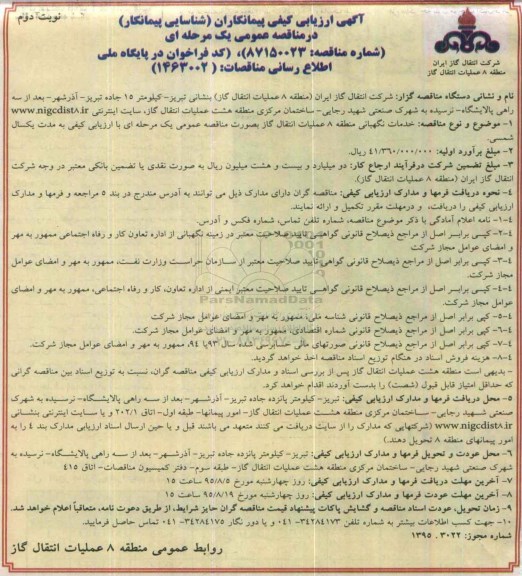 نوبت دوم
آگهی ارزیابی کیفی پیمانکاران (شناسایی پیمانکار)
درمناقصه عمومی یک مرحله ای
(شماره مناقصه: ۸۷۱۵۰۰۲۳)، (کد فراخوان در پایگاه ملی
اطلاع رسانی مناقصات: ( ۱۴۶۳۰۰۲)
شرکت انتقال گاز ایران
منطقه ۸ عملیات انتقال گاز
نام و نشانی دستگاه مناقصه گزار: شرکت انتقال گاز ایران (منطقه ۸ عملیات انتقال گاز) بنشانی تبریز- کیلومتر ۱۵ جاده تبریز- آذرشهر- بعد از سه
راهی پالایشگاه- نرسیده به شهرک صنعتی شهید رجایی- ساختمان مرکزی منطقه هشت عملیات انتقال گاز، سایت اینترنتی www.nigcdist8.ir
۱- موضوع و نوع مناقصه: خدمات نگهبانی منطقه ۸ عملیات انتقال گاز بصورت مناقصه عمومی یک مرحله ای با ارزیابی کیفی به مدت یکسال
شمسی
۲- مبلغ برآورد اولیه: ۴۱/۳۶۰/۰۰۰/۰۰۰ ریال.
۳- مبلغ تضمین شرکت درفرآیند ارجاع کار: دو میلیارد و بیست و هشت میلیون ریال به صورت نقدی یا تضمین بانکی معتبر در وجه شرکت
انتقال گاز ایران (منطقه ۸ عملیات انتقال گاز).
۴- نحوه دریافت فرمها و مدارک ارزیابی کیفی: مناقصه گران دارای مدارک ذیل می توانند به آدرس مندرج در بند ۵ مراجعه و فرمها و مدارک
ارزیابی کیفی را دریافت، و درمهلت مقرر تکمیل و ارائه نمایند.
۴-۱- نامه اعلام آمادگی با ذکر موضوع مناقصه، شماره تلفن تماس، شماره فکس و آدرس.
۴-۲- کپی برابر اصل از مراجع ذیصلاح قانونی گواهی تایید صلاحیت معتبر در زمینه نگهبانی از اداره تعاون کار و رفاه اجتماعی ممهور به مهر
و امضای عوامل مجاز شرکت
۴-۳- کپی برابر اصل از مراجع ذیصلاح قانونی گواهی تایید صلاحیت معتبر از سازمان حراست وزارت نفت، ممهور به مهر و امضای عوامل
مجاز شرکت.
۴-۴- کپی برابر اصل از مراجع ذیصلاح قانونی گواهی تایید صلاحیت معتبر ایمنی از اداره تعاون، کار و رفاه اجتماعی، ممهور به مهر و امضای
عوامل مجاز شرکت.
۴-۵- کپی برابر اصل از مراجع ذیصلاح قانونی شناسه ملی، ممهور به مهر و امضای عوامل مجاز شرکت
۴-۶- کپی برابر اصل از مراجع ذیصلاح قانونی شماره اقتصادی، ممهور به مهر و امضای عوامل مجاز شرکت.
۴-۷- کپی برابر اصل از مراجع ذیصلاح قانونی صورتهای مالی حسابرسی شده سال ۹۳یا ۹۴، ممهور به مهر و امضای عوامل مجاز شرکت.
۴-۸- هزینه فروش اسناد در هنگام توزیع اسناد مناقصه اخذ خواهد گردید.
- بدیهی است منطقه هشت عملیات انتقال گاز پس از بررسی اسناد و مدارک ارزیابی کیفی مناقصه گران، نسبت به توزیع اسناد بین مناقصه گرانی
که حداقل امتیاز قابل قبول (شصت) را بدست آوردند اقدام خواهد کرد.
۵- محل دریافت فرمها و مدارک ارزیابی کیفی: تبریز- کیلومتر پانزده جاده تبریز- آذرشهر- بعد از سه راهی پالایشگاه- نرسیده به شهرک
صنعتی شهید رجایی- ساختمان مرکزی منطقه هشت عملیات انتقال گاز- امور پیمانها- طبقه اول- اتاق ۲۰۲/۱ و یا سایت اینترنتی بنشانی
www.nigcdist8.ir (شرکتهایی که مدارک را از سایت دریافت می کنند متعهد می باشند قبل و یا حین ارسال اسناد ارزیابی مدارک بند ۴ را به
امور پیمانهای منطقه ۸ تحویل دهند.)
۶- محل عودت و تحویل فرمها و مدارک ارزیابی کیفی: تبریز- کیلومتر پانزده جاده تبریز- آذرشهر- بعد از سه راهی پالایشگاه- نرسیده به
شهرک صنعتی شهید رجایی- ساختمان مرکزی منطقه هشت عملیات انتقال گاز- طبقه سوم- دفتر کمیسیون مناقصات- اتاق ۴۱۵
۷- آخرین مهلت دریافت فرمها و مدارک ارزیابی کیفی: روز چهارشنبه مورخ ۹۵/۸/۵ ساعت ۱۵
۸- آخرین مهلت عودت فرمها و مدارک ارزیابی کیفی: روز چهارشنبه مورخ ۹۵/۸/۱۹ ساعت ۱۵
۹- زمان تحویل، عودت اسناد مناقصه و گشایش پاکات پیشنهاد قیمت مناقصه گران حایز شرایط، از طریق دعوت نامه، متعاقباً اعلام خواهد شد.
۱۰- جهت کسب اطلاعات بیشتر به شماره تلفن ۳۴۲۸۴۱۷۳- ۰۴۱ و یا دور نگار ۳۴۲۸۴۱۷۵- ۰۴۱ تماس حاصل فرمایید.
شماره مجوز: ۳۰۲۲ . ۱۳۹۵
روابط عمومی منطقه ۸ عملیات انتقال گاز
ParsNamadData